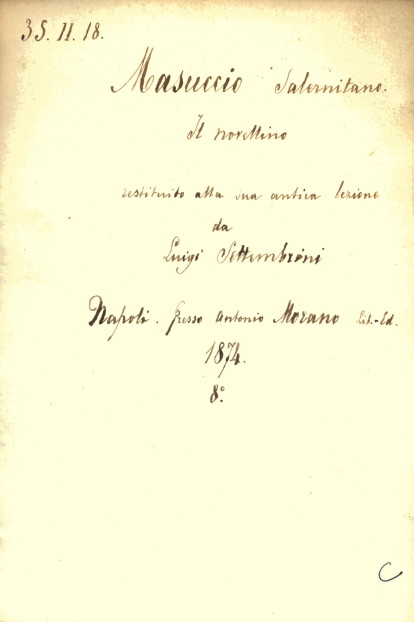 35. II. 18.
Masuccio Salernitano.
Il novellino
restituito alla sua antica lezione
da
Luigi Settembrini
Napoli. Presso Antonio Morano Lib.-Ed.
1874.
8º
C